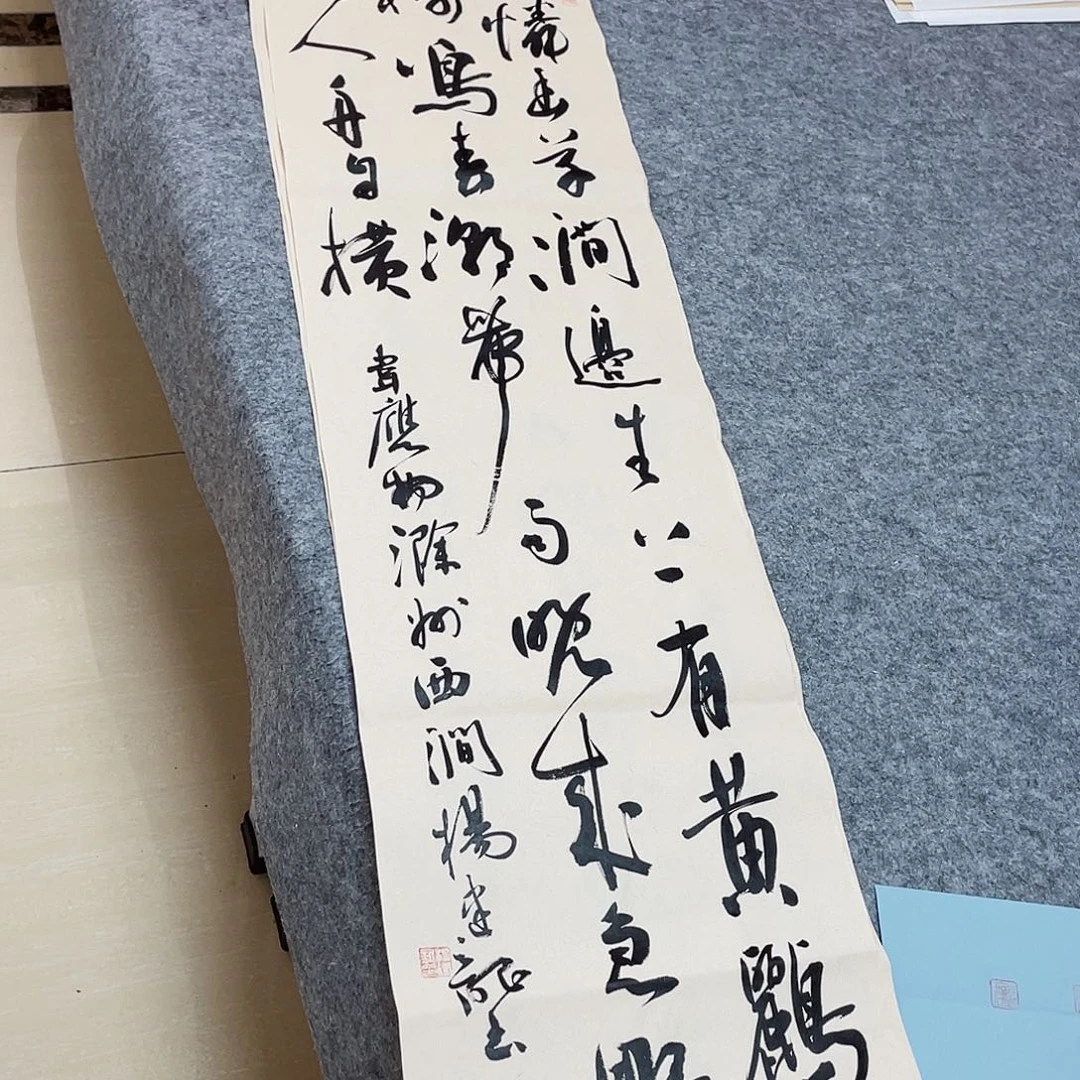 憐幽草澗邊生上有黃鸝
樹鳴春潮帶雨晚來急野
人舟自橫
韋應物滁州西澗楊建龍書